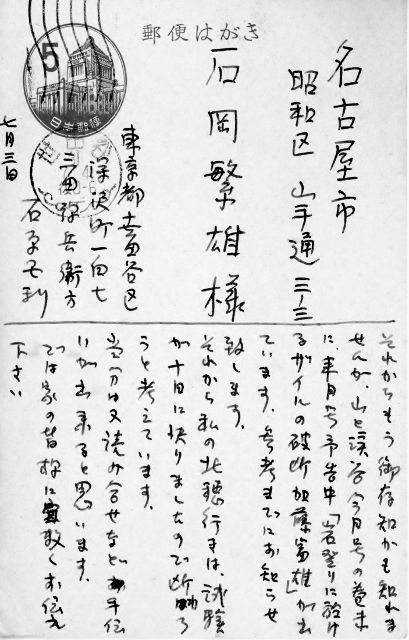 郵便はがき
5
日本郵便
名古屋市
昭和区 山手通 三ノ三
石岡繁雄様
東京都世田谷区
深沢町一ノ四七
三田弥兵衛方
石原国利
七月三日
それからもう御存知かも知れま
せんが、山と渓谷今月号の巻末
に、来月号予告中「岩登りに於け
るザイルの破断 加藤富雄」が出
ています。参考までにお知らせ
致します。
それから私の北穂行きは、試験
が十日に決りましたので断ろ
うと考えています。
当分は又読み合せなどお手伝
いが出来ると思います。
では家の皆様に宜敷くお伝え
下さい